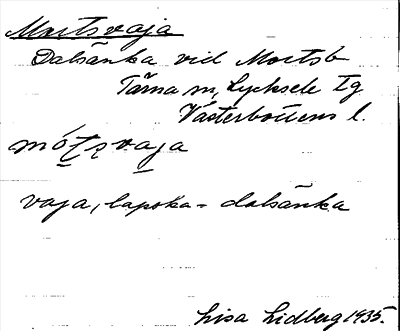 Mortsvaja
Dalsänka vid Mortsb
Tärna sn, Lycksele Lg
Västerbottens l.
mótsvaja
vaja, lapska = dalsänka
Lisa Lidberg 1935.